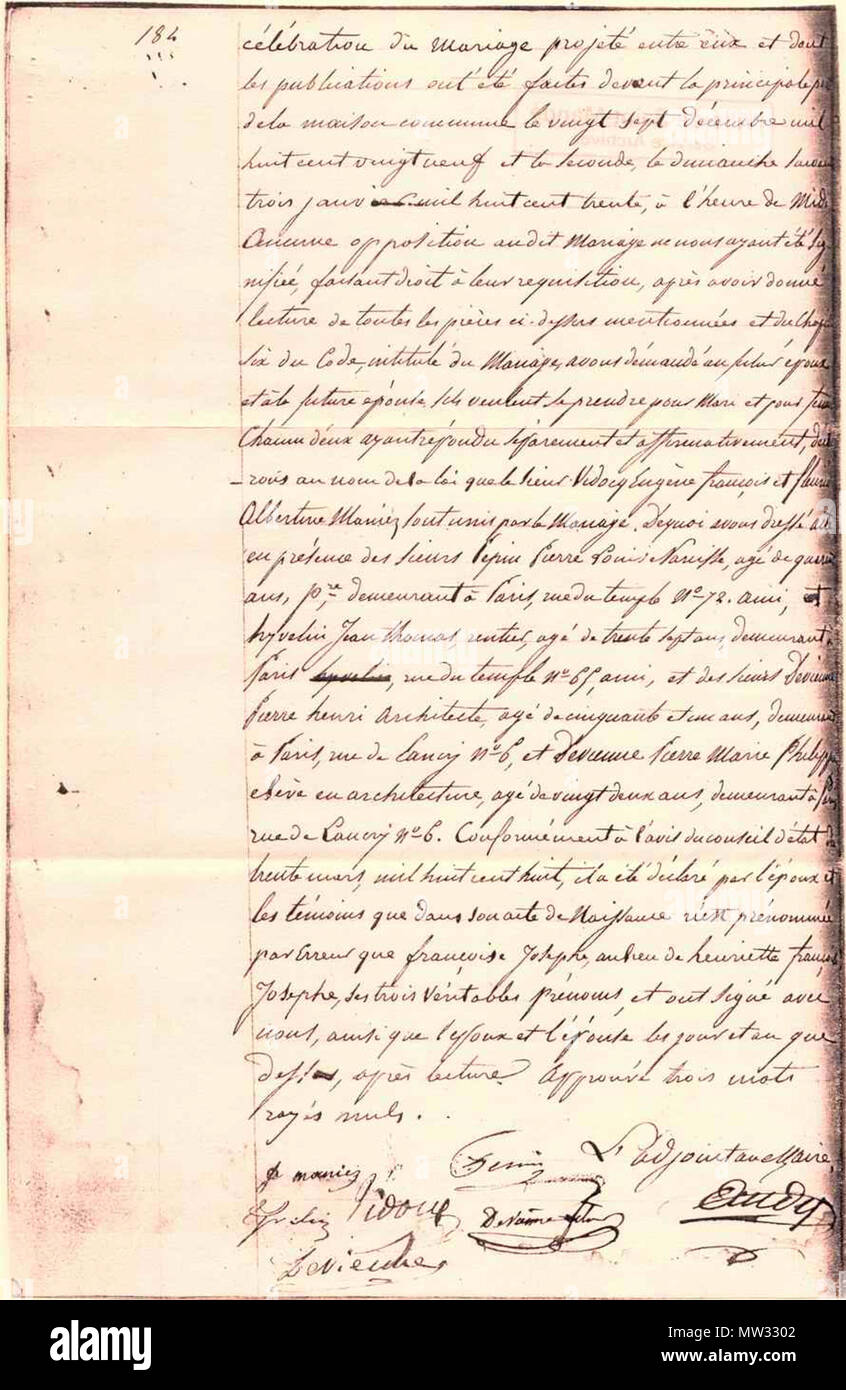 184
célébration du Mariage projeté entre eux et dont
les publications ont été faites devant la principale
de la maison commune le vingt sept décembre mil
huit cent vingt neuf et la seconde, le dimanche
trois janvier mil huit cent trente, à l'heure de Midi
Aucune opposition au dit Mariage ne nous ayant été sig
nifiée, faisant droit à leur requisition, après avoir donné
lecture de toutes les pièces ci-dessus mentionnées et du Chap
six du Code, intitulé du Mariage, avons demandé au futur époux
et à la future épouse s'ils veulent se prendre pour Mari et pour
Chacun d'eux ayant répondu séparement et affirmativement,
rons au nom de la loi que le sieur Vidocq Eugène françois et fleuride
Albertine Maniez sont unis par le Mariage. De quoi avons dressé acte
en présence des sieurs Pépin Pierre Louis Narcisse, agé de
ans, demeurant à Paris, rue du temple No 72. ami, et
hyvelin Jean thomas rentier, agé de trente sept ans, demeurant à
Paris, rue du temple No 65, ami, et des sieurs Devienne
Pierre henri Architecte, agé de cinquante et un ans, demeurant
à Paris, rue de Lancry No 6, et Devienne Pierre Marie Philippe
elève en architecture, agé de vingt deux ans, demeurant à Paris
rue de Lancry No 6. Conformément à l'avis du conseil d'état du
trente mars, mil huit cent huit, il a été déclaré par l'époux et
les témoins que dans son acte de Naissance n'est prénommée
par Erreur que françoise Josephe, au lieu de henriette françoise
Josephe, ses trois véritables prénoms, et ont signé avec
nous, ainsi que l'époux et l'épouse les jour et an que
dessus, après lecture. Approuvé trois mots
rayés nuls.
L'adjoint au Maire,
f maniez
Vidocq
Devienne
alamy
Image ID: MW3302
www.alamy.com